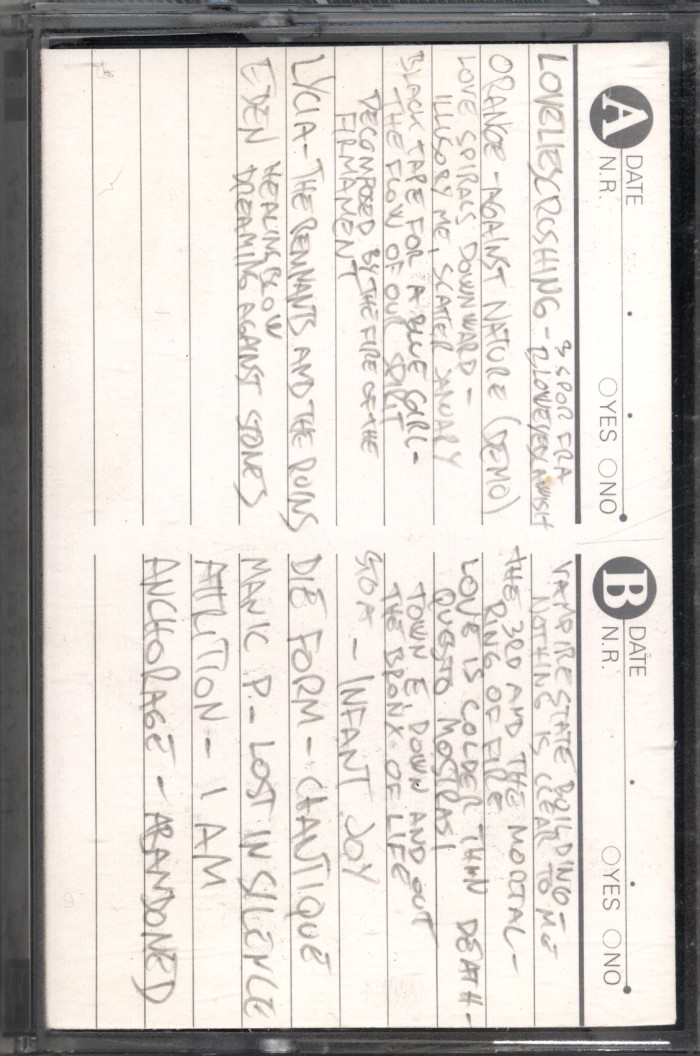 A DATE
N.R. YES NO
LOVELIESCRUSHING - 3 SPOR FRA
BLOWEYELASHWISH
ORANGE - AGAINST NATURE (DEMO)
LOVE SPIRALS DOWNWARD -
ILLUSORY ME, SCATTER JANUARY
BLACK TAPE FOR A BLUE GIRL -
THE FLOW OF OUR SPIRIT
DECOMPOSED BY THE FIRE OF THE
FIRMAMENT
LYCIA - THE REMNANTS AND THE RUINS
EDEN HEALING BOW
DREAMING AGAINST STONES
B DATE
N.R. YES NO
VAMPIRE STATE BUILDING -
NOTHING IS CLEAR TO ME
THE 3RD AND THE MORTAL -
RING OF FIRE
LOVE IS COLDER THAN DEATH -
QUESTO MOSTRASI
TOWN E. DOWN AND OUT
THE BRONX OF LIFE
GOA - INFANT JOY
DIE FORM - CHANTIQUE
MANIC P. - LOST IN SILENCE
ATTRITION - I AM
ANCHORAGE - ABANDONED